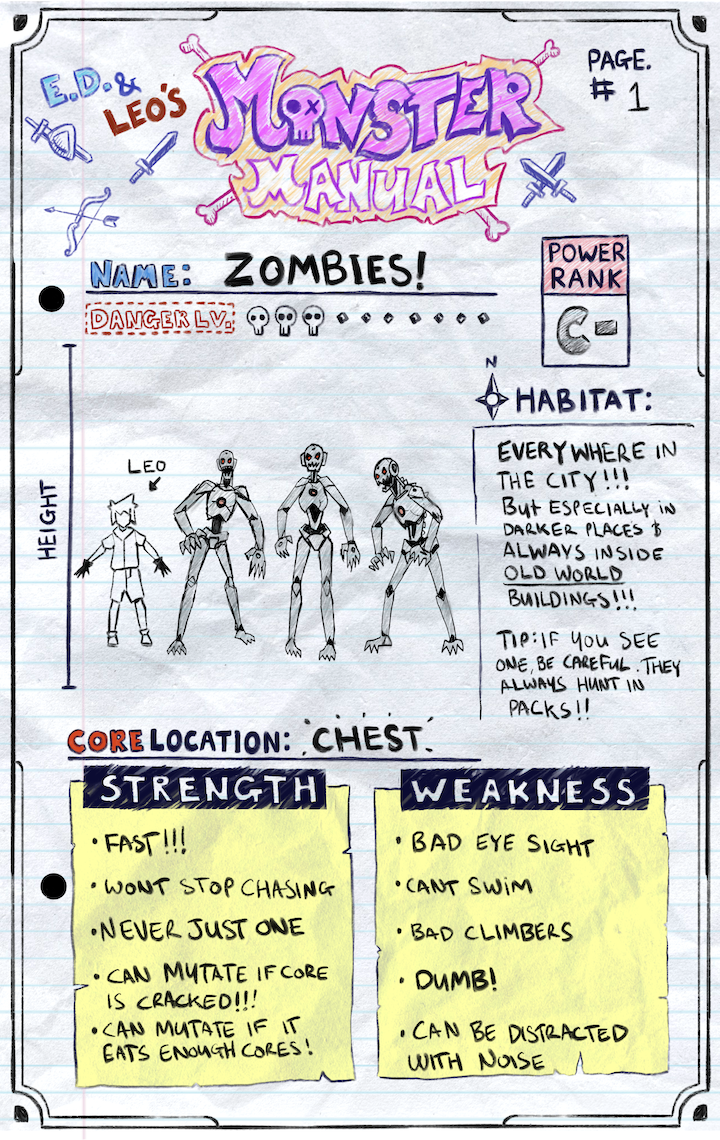 E.D. &
LEO'S
MONSTER
MANUAL
PAGE.
# 1
NAME: ZOMBIES!
DANGER LV.
POWER
RANK
C-
N
HABITAT:
EVERYWHERE IN
THE CITY!!!
BUT ESPECIALLY IN
DARKER PLACES &
ALWAYS INSIDE
OLD WORLD
BUILDINGS!!!
TIP: IF YOU SEE
ONE, BE CAREFUL. THEY
ALWAYS HUNT IN
PACKS!!
HEIGHT
LEO
CORE LOCATION: CHEST
STRENGTH
• FAST!!!
• WONT STOP CHASING
• NEVER JUST ONE
• CAN MUTATE IF CORE
IS CRACKED!!!
• CAN MUTATE IF IT
EATS ENOUGH CORES!
WEAKNESS
• BAD EYE SIGHT
• CANT SWIM
• BAD CLIMBERS
• DUMB!
• CAN BE DISTRACTED
WITH NOISE